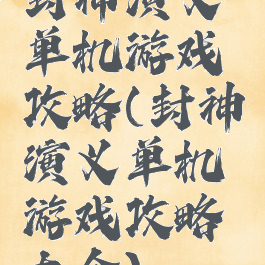 封神演义
单机游戏
攻略(封神
演义单机
游戏攻略
大全)